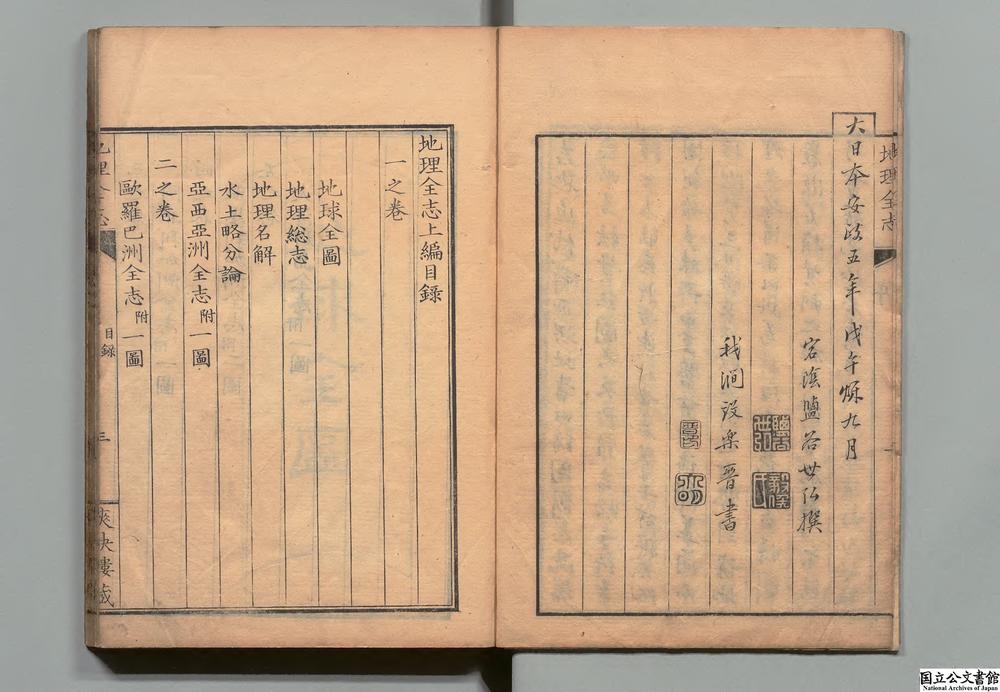 地理全志
大日本安政五年戊午穌九月
宕陰鹽谷世弘撰
我澗設楽晋書
地理全志上編目錄
一之巻
地球全圖
地理総志
地理名解
水土略分論
亞西亞洲全志附一圖
二之巻
歐羅巴洲全志附一圖
地理全志
目録
三
爽快樓蔵
国立公文書館
National Archives of Japan